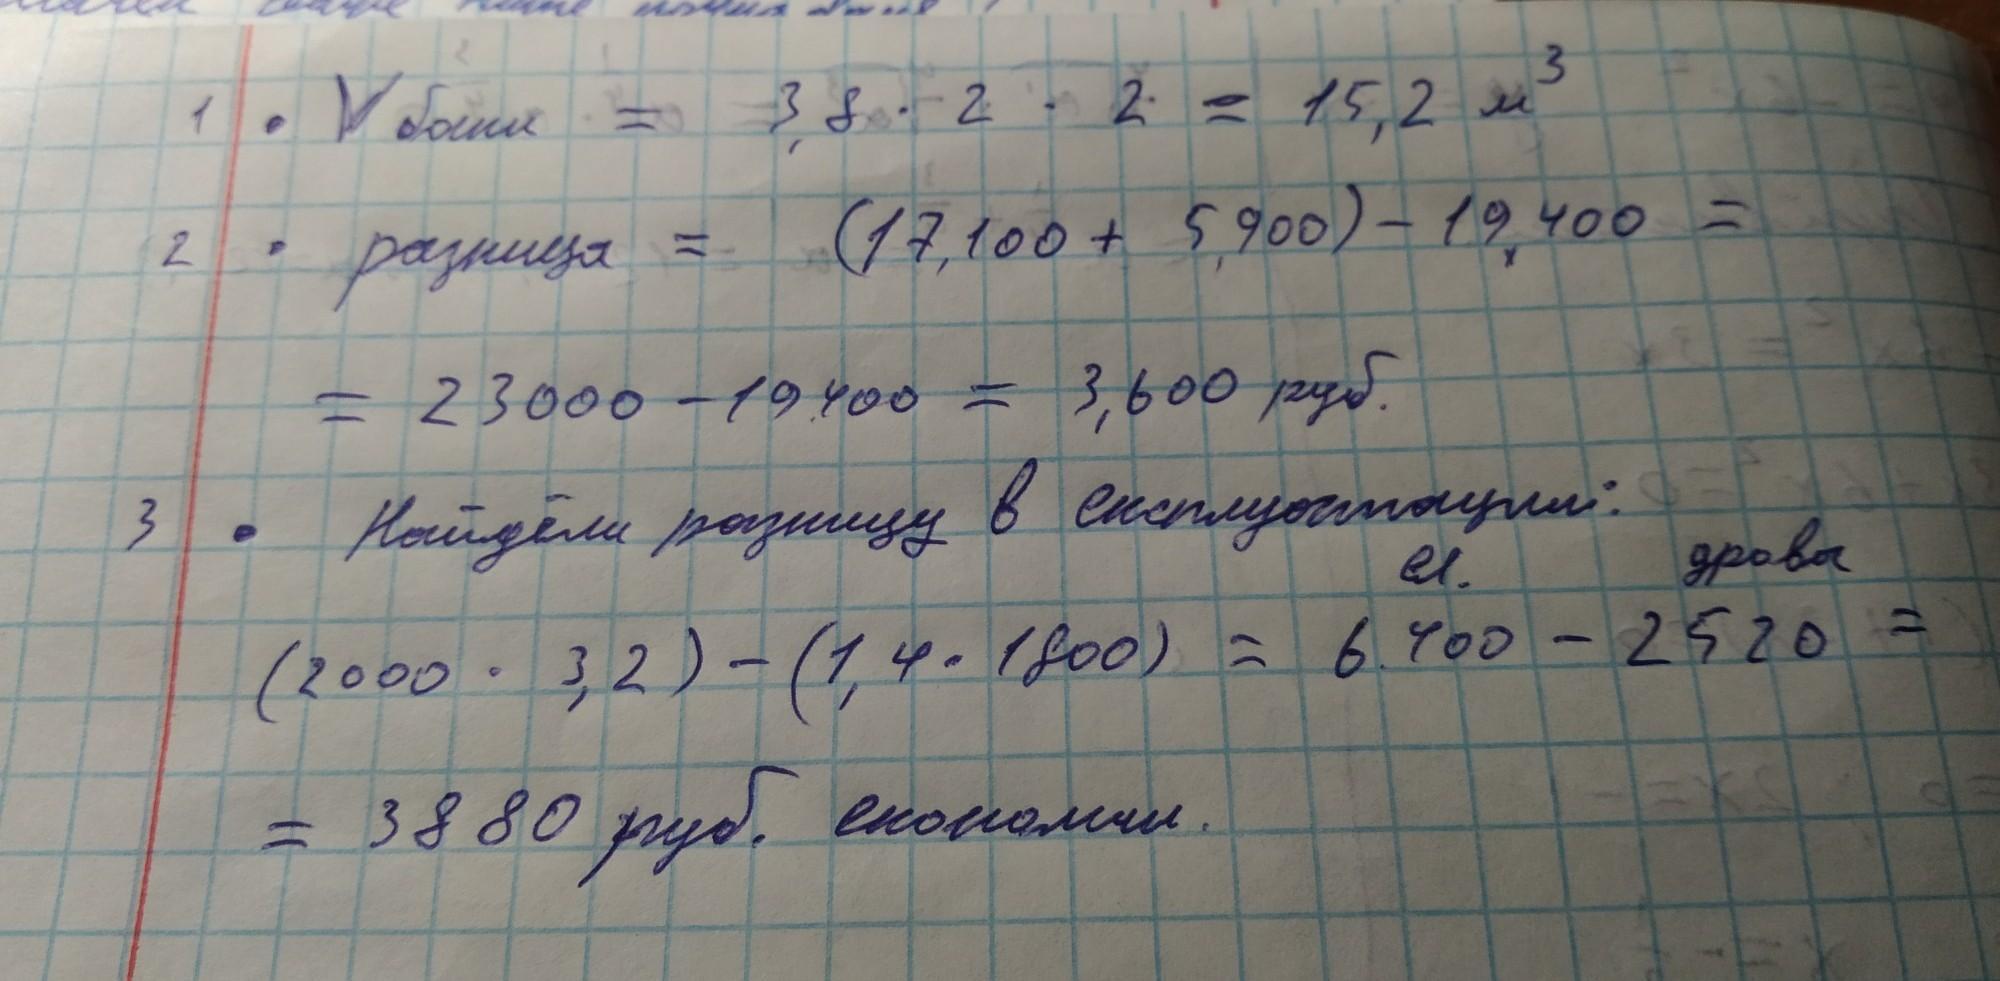 1 • V бани = 3,8 · 2 · 2 = 15,2 м³
2 • разница = (17,100 + 5,900) - 19,400 =
= 23000 - 19.400 = 3,600 руб.
3 • Найдём разницу в експлуатации:
ел. дрова
(2000 · 3,2) - (1,4 · 1800) = 6.400 - 2520 =
= 3880 руб. економии.